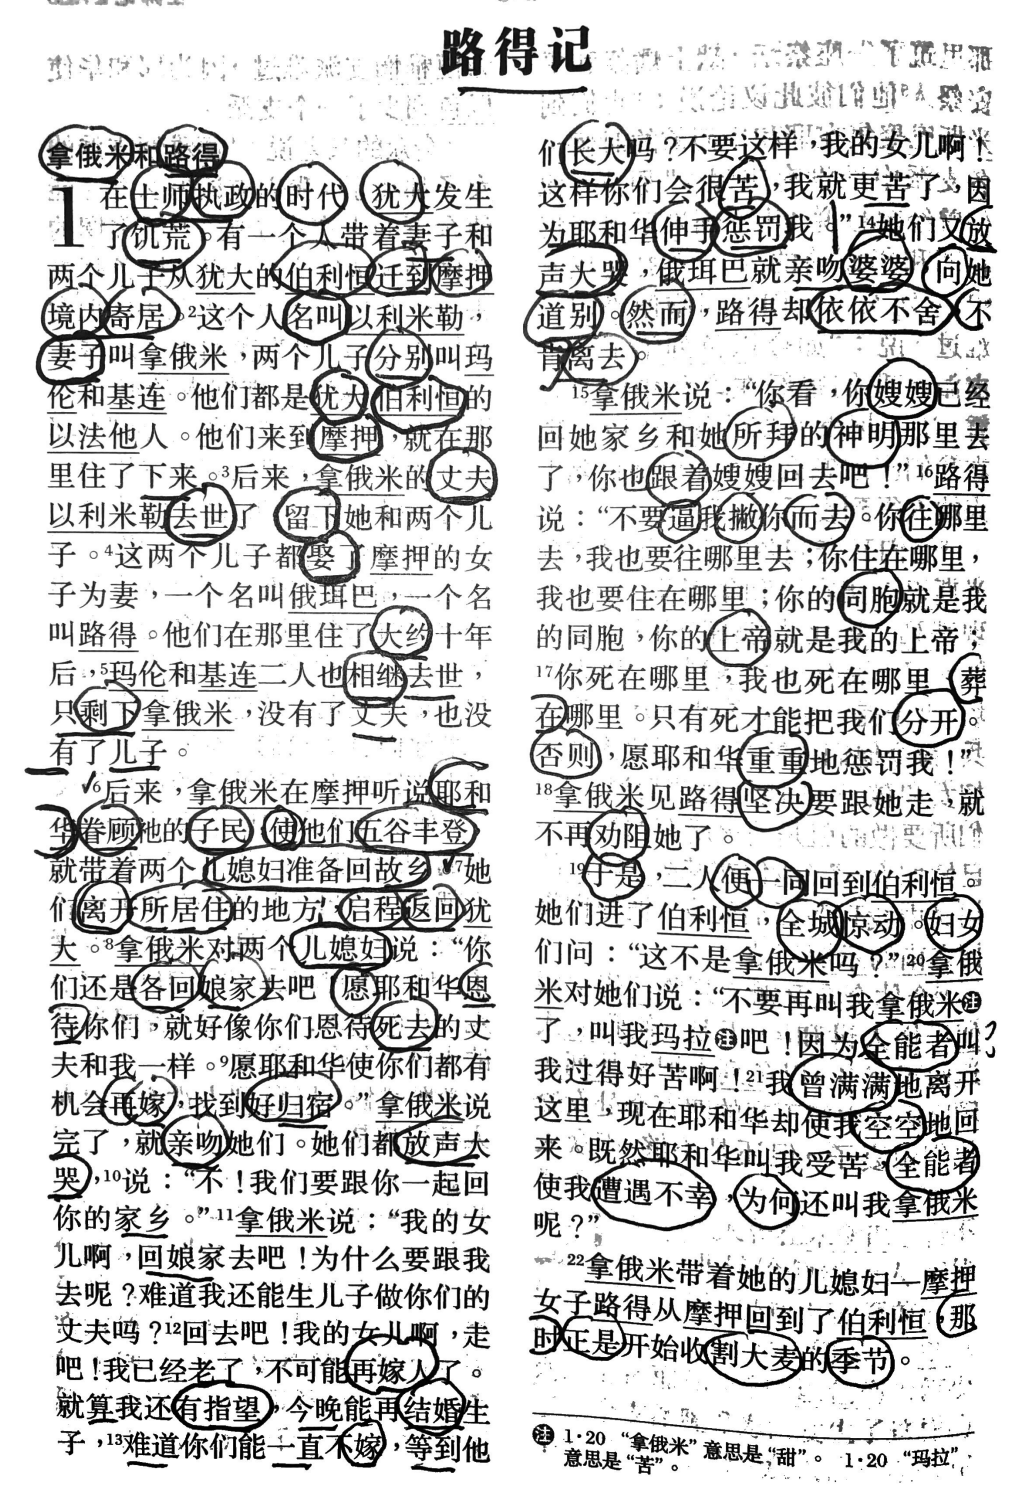 路得记
拿俄米和路得
1 在士师执政的时代，犹大发生
了饥荒。有一个人带着妻子和
两个儿子从犹大的伯利恒迁到摩押
境内寄居。²这个人名叫以利米勒，
妻子叫拿俄米，两个儿子分别叫玛
伦和基连。他们都是犹大伯利恒的
以法他人。他们来到摩押，就在那
里住了下来。³后来，拿俄米的丈夫
以利米勒去世了，留下她和两个儿
子。⁴这两个儿子都娶了摩押的女
子为妻，一个名叫俄珥巴，一个名
叫路得。他们在那里住了大约十年
后，⁵玛伦和基连二人也相继去世，
只剩下拿俄米，没有了丈夫，也没
有了儿子。
⁶后来，拿俄米在摩押听说耶和
华眷顾祂的子民，使他们五谷丰登，
就带着两个儿媳妇准备回故乡。⁷她
们离开所居住的地方，启程返回犹
大。⁸拿俄米对两个儿媳妇说：“你
们还是各回娘家去吧！愿耶和华恩
待你们，就好像你们恩待死去的丈
夫和我一样。⁹愿耶和华使你们都有
机会再嫁，找到好归宿。”拿俄米说
完了，就亲吻她们。她们都放声大
哭，¹⁰说：“不！我们要跟你一起回
你的家乡。”¹¹拿俄米说：“我的女
儿啊，回娘家去吧！为什么要跟我
去呢？难道我还能生儿子做你们的
丈夫吗？¹²回去吧！我的女儿啊，走
吧！我已经老了，不可能再嫁人了。
就算我还有指望，今晚能再结婚生
子，¹³难道你们能一直不嫁，等到他
们长大吗？不要这样，我的女儿啊！
这样你们会很苦，我就更苦了，因
为耶和华伸手惩罚我。”¹⁴她们又放
声大哭，俄珥巴就亲吻婆婆，向她
道别。然而，路得却依依不舍，不
肯离去。
¹⁵拿俄米说：“你看，你嫂嫂已经
回她家乡和她所拜的神明那里去
了，你也跟着嫂嫂回去吧！”¹⁶路得
说：“不要逼我撇你而去。你往哪里
去，我也要往哪里去；你住在哪里，
我也要住在哪里；你的同胞就是我
的同胞，你的上帝就是我的上帝；
¹⁷你死在哪里，我也死在哪里，葬
在哪里。只有死才能把我们分开。
否则，愿耶和华重重地惩罚我！”
¹⁸拿俄米见路得坚决要跟她走，就
不再劝阻她了。
¹⁹于是，二人便一同回到伯利恒。
她们进了伯利恒，全城惊动。妇女
们问：“这不是拿俄米吗？”²⁰拿俄
米对她们说：“不要再叫我拿俄米㊟
了，叫我玛拉㊟吧！因为全能者叫
我过得好苦啊！²¹我曾满满地离开
这里，现在耶和华却使我空空地回
来。既然耶和华叫我受苦，全能者
使我遭遇不幸，为何还叫我拿俄米
呢？”
²²拿俄米带着她的儿媳妇—摩押
女子路得从摩押回到了伯利恒，那
时正是开始收割大麦的季节。
㊟ 1·20 “拿俄米”意思是“甜”。 1·20 “玛拉”
意思是“苦”。